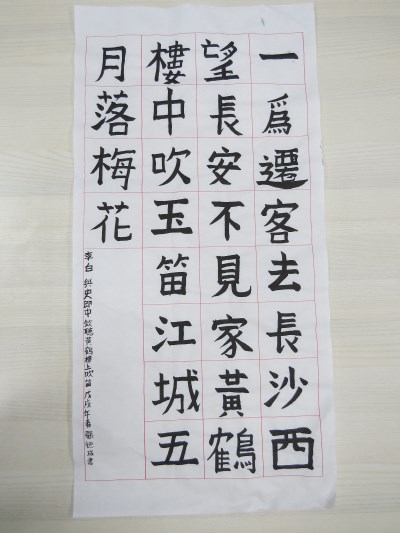 一爲遷客去長沙西
望長安不見家黃鶴
樓中吹玉笛江城五
月落梅花
李白 與史郎中欽聽黃鶴樓上吹笛 戊戌年春